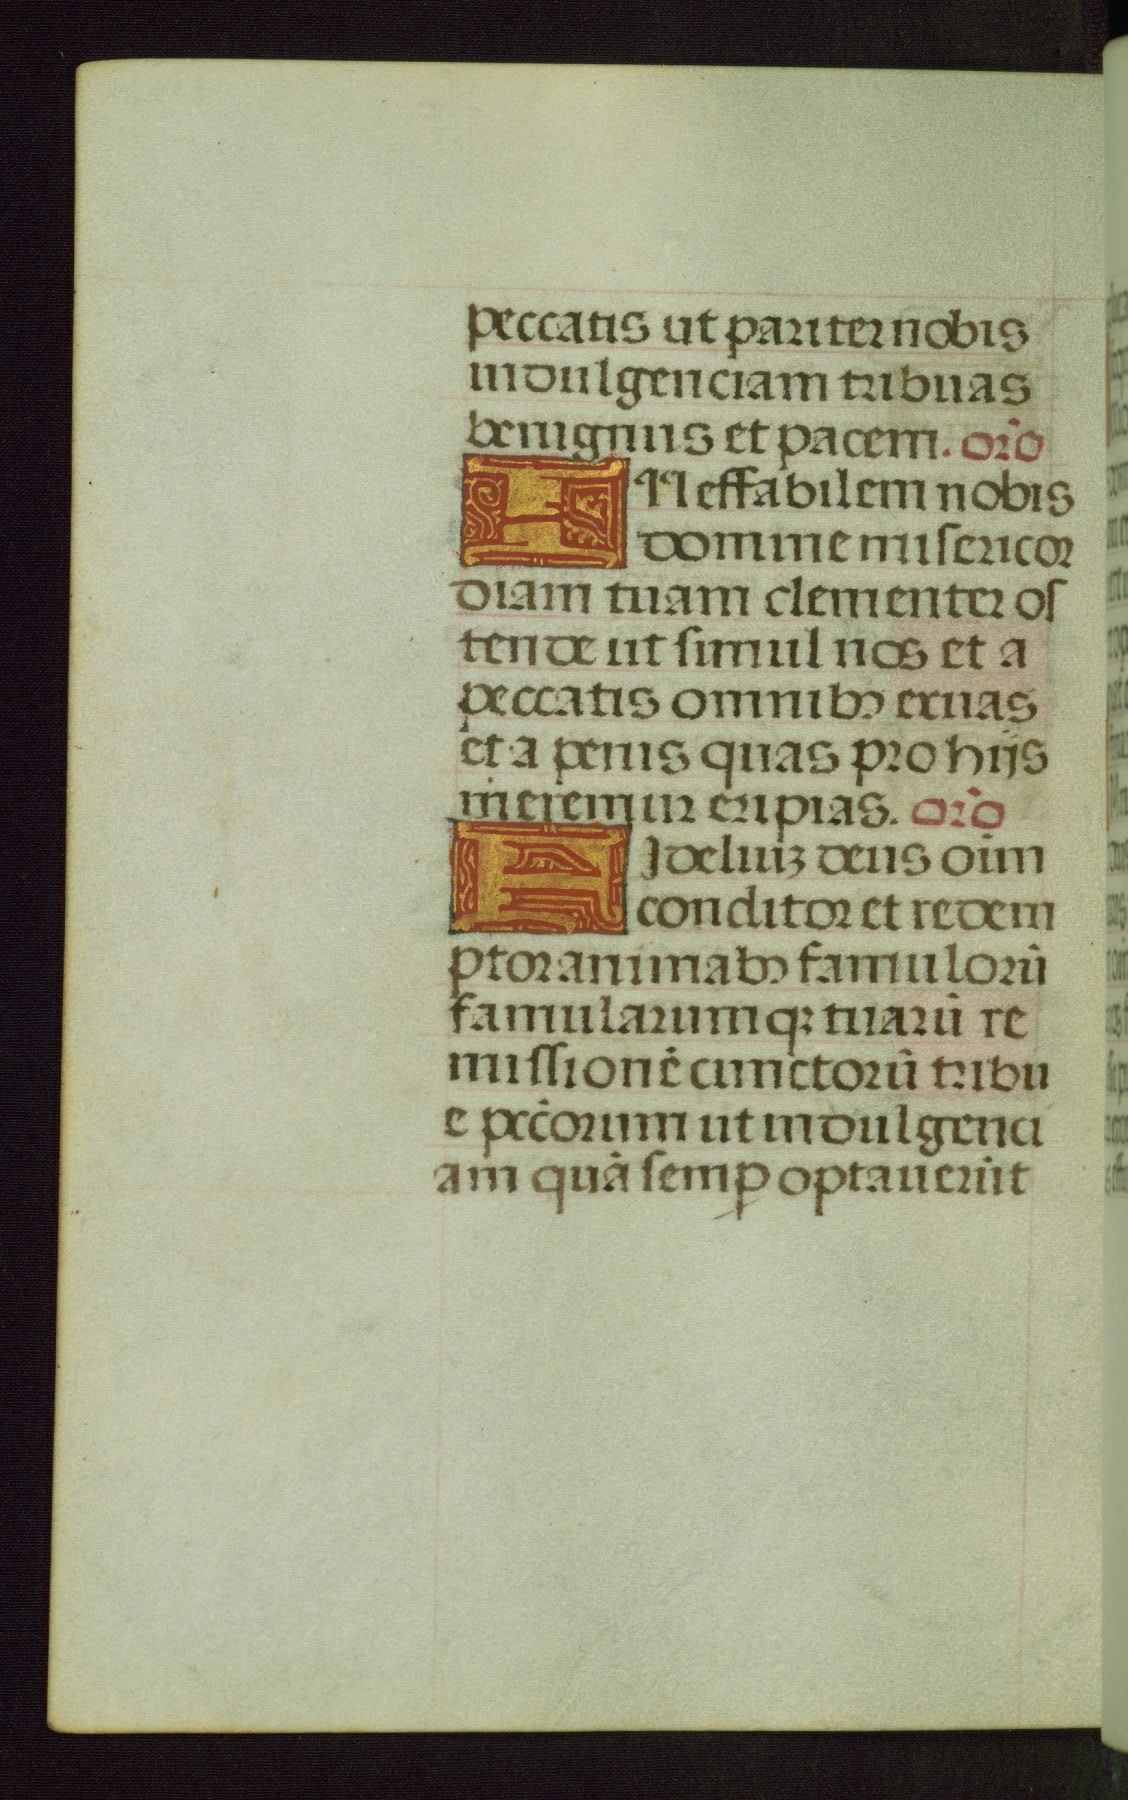 peccatis ut pariter nobis
indulgenciam tribuas
benignus et pacem. or̃o
INeffabilem nobis
domine misericor
diam tuam clementer os
tende ut simul nos et a
peccatis omnibꝫ exuas
et a penis quas pro hijs
meremur eripias. or̃o
FIdeliuꝫ deus oı̃m
conditor et redem
ptor animabꝫ famulorū
famularumqꝫ tuarū re
missionē cunctorū tribu
e pcc̄orum ut indulgenci
am quā semꝑ optauerūt